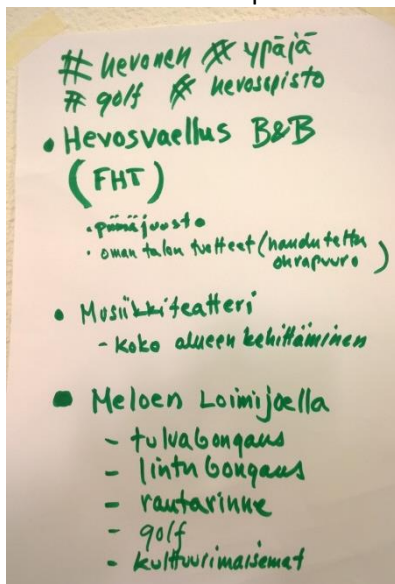 # hevonen # ypäjä
# golf # hevosopisto
• Hevosvaellus B&B
(FHT)
• piimäjuusto
• oman talon tuotteet (haudutettu
ohrapuuro)
• Musiikkiteatteri
- koko alueen kehittäminen
• Meloen Loimijoella
- tulvabongaus
- lintubongaus
- rautarinne
- golf
- kulttuurimaisemat